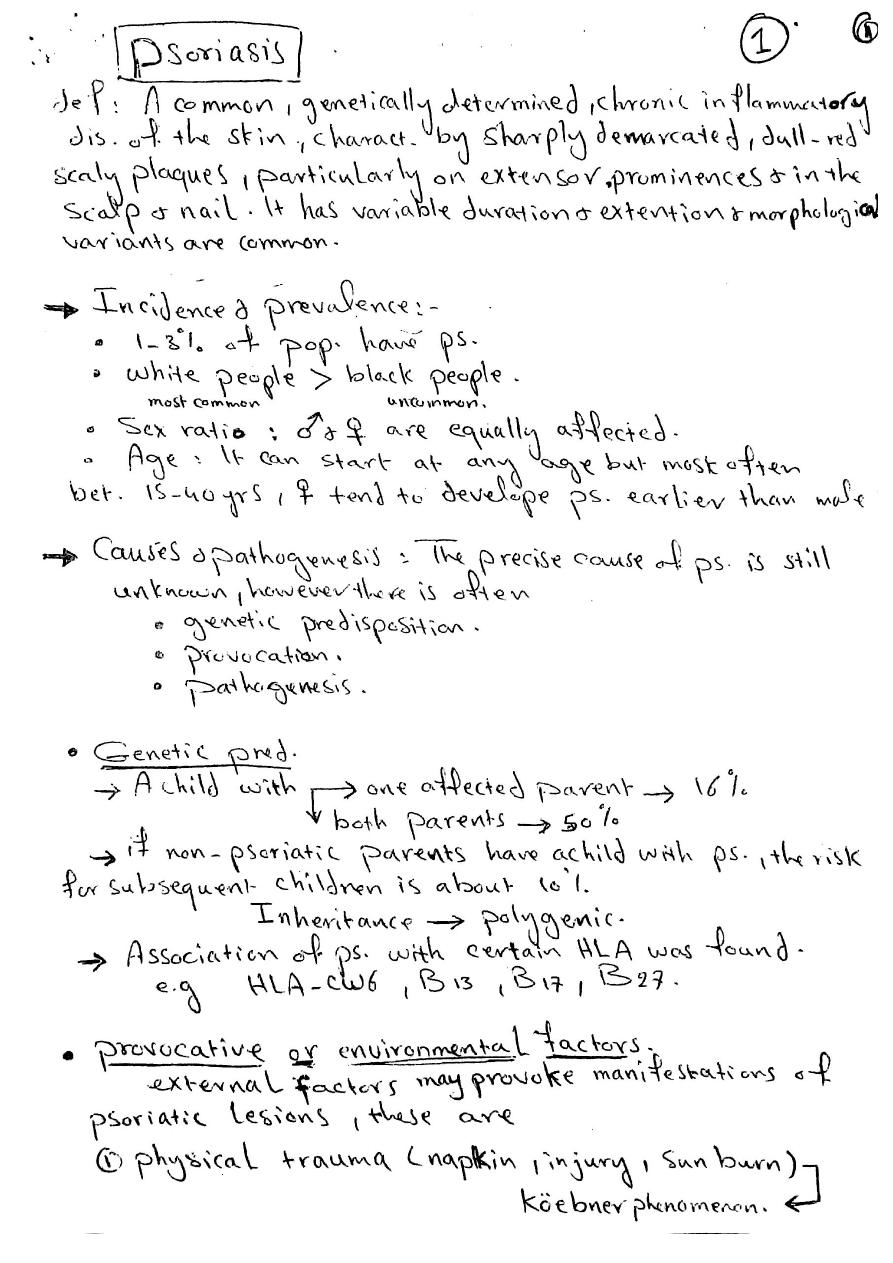 psoriasis ①
def: A common, genetically determined, chronic inflammatory
dis. of the skin, charact. by sharply demarcated, dull-red
scaly plaques, particularly on extensor prominences & in the
scalp & nail. It has variable duration & extention & morphological
variants are common.
→ Incidence & prevalence:-
• 1-3% of pop. have ps.
• white people > black people.
most common uncommon.
• Sex ratio: ♂ & ♀ are equally affected.
• Age: It can start at any age but most often
bet. 15-40 yrs, ♀ tend to develope ps. earlier than male
→ Causes & pathogenesis: The precise cause of ps. is still
unknown, however there is often
• genetic predisposition.
• provocation.
• pathogenesis.
• Genetic pred.
→ A child with → one affected parent → 16%
↓ both parents → 50%
→ if non-psoriatic parents have a child with ps., the risk
for subsequent children is about 10%.
Inheritance → polygenic.
→ Association of ps. with certain HLA was found.
e.g HLA-CW6, B13, B17, B27.
• provocative or environmental factors.
external factors may provoke manifestations of
psoriatic lesions, these are
① physical trauma (napkin, injury, sun burn)
Köebner phenomenon. ←